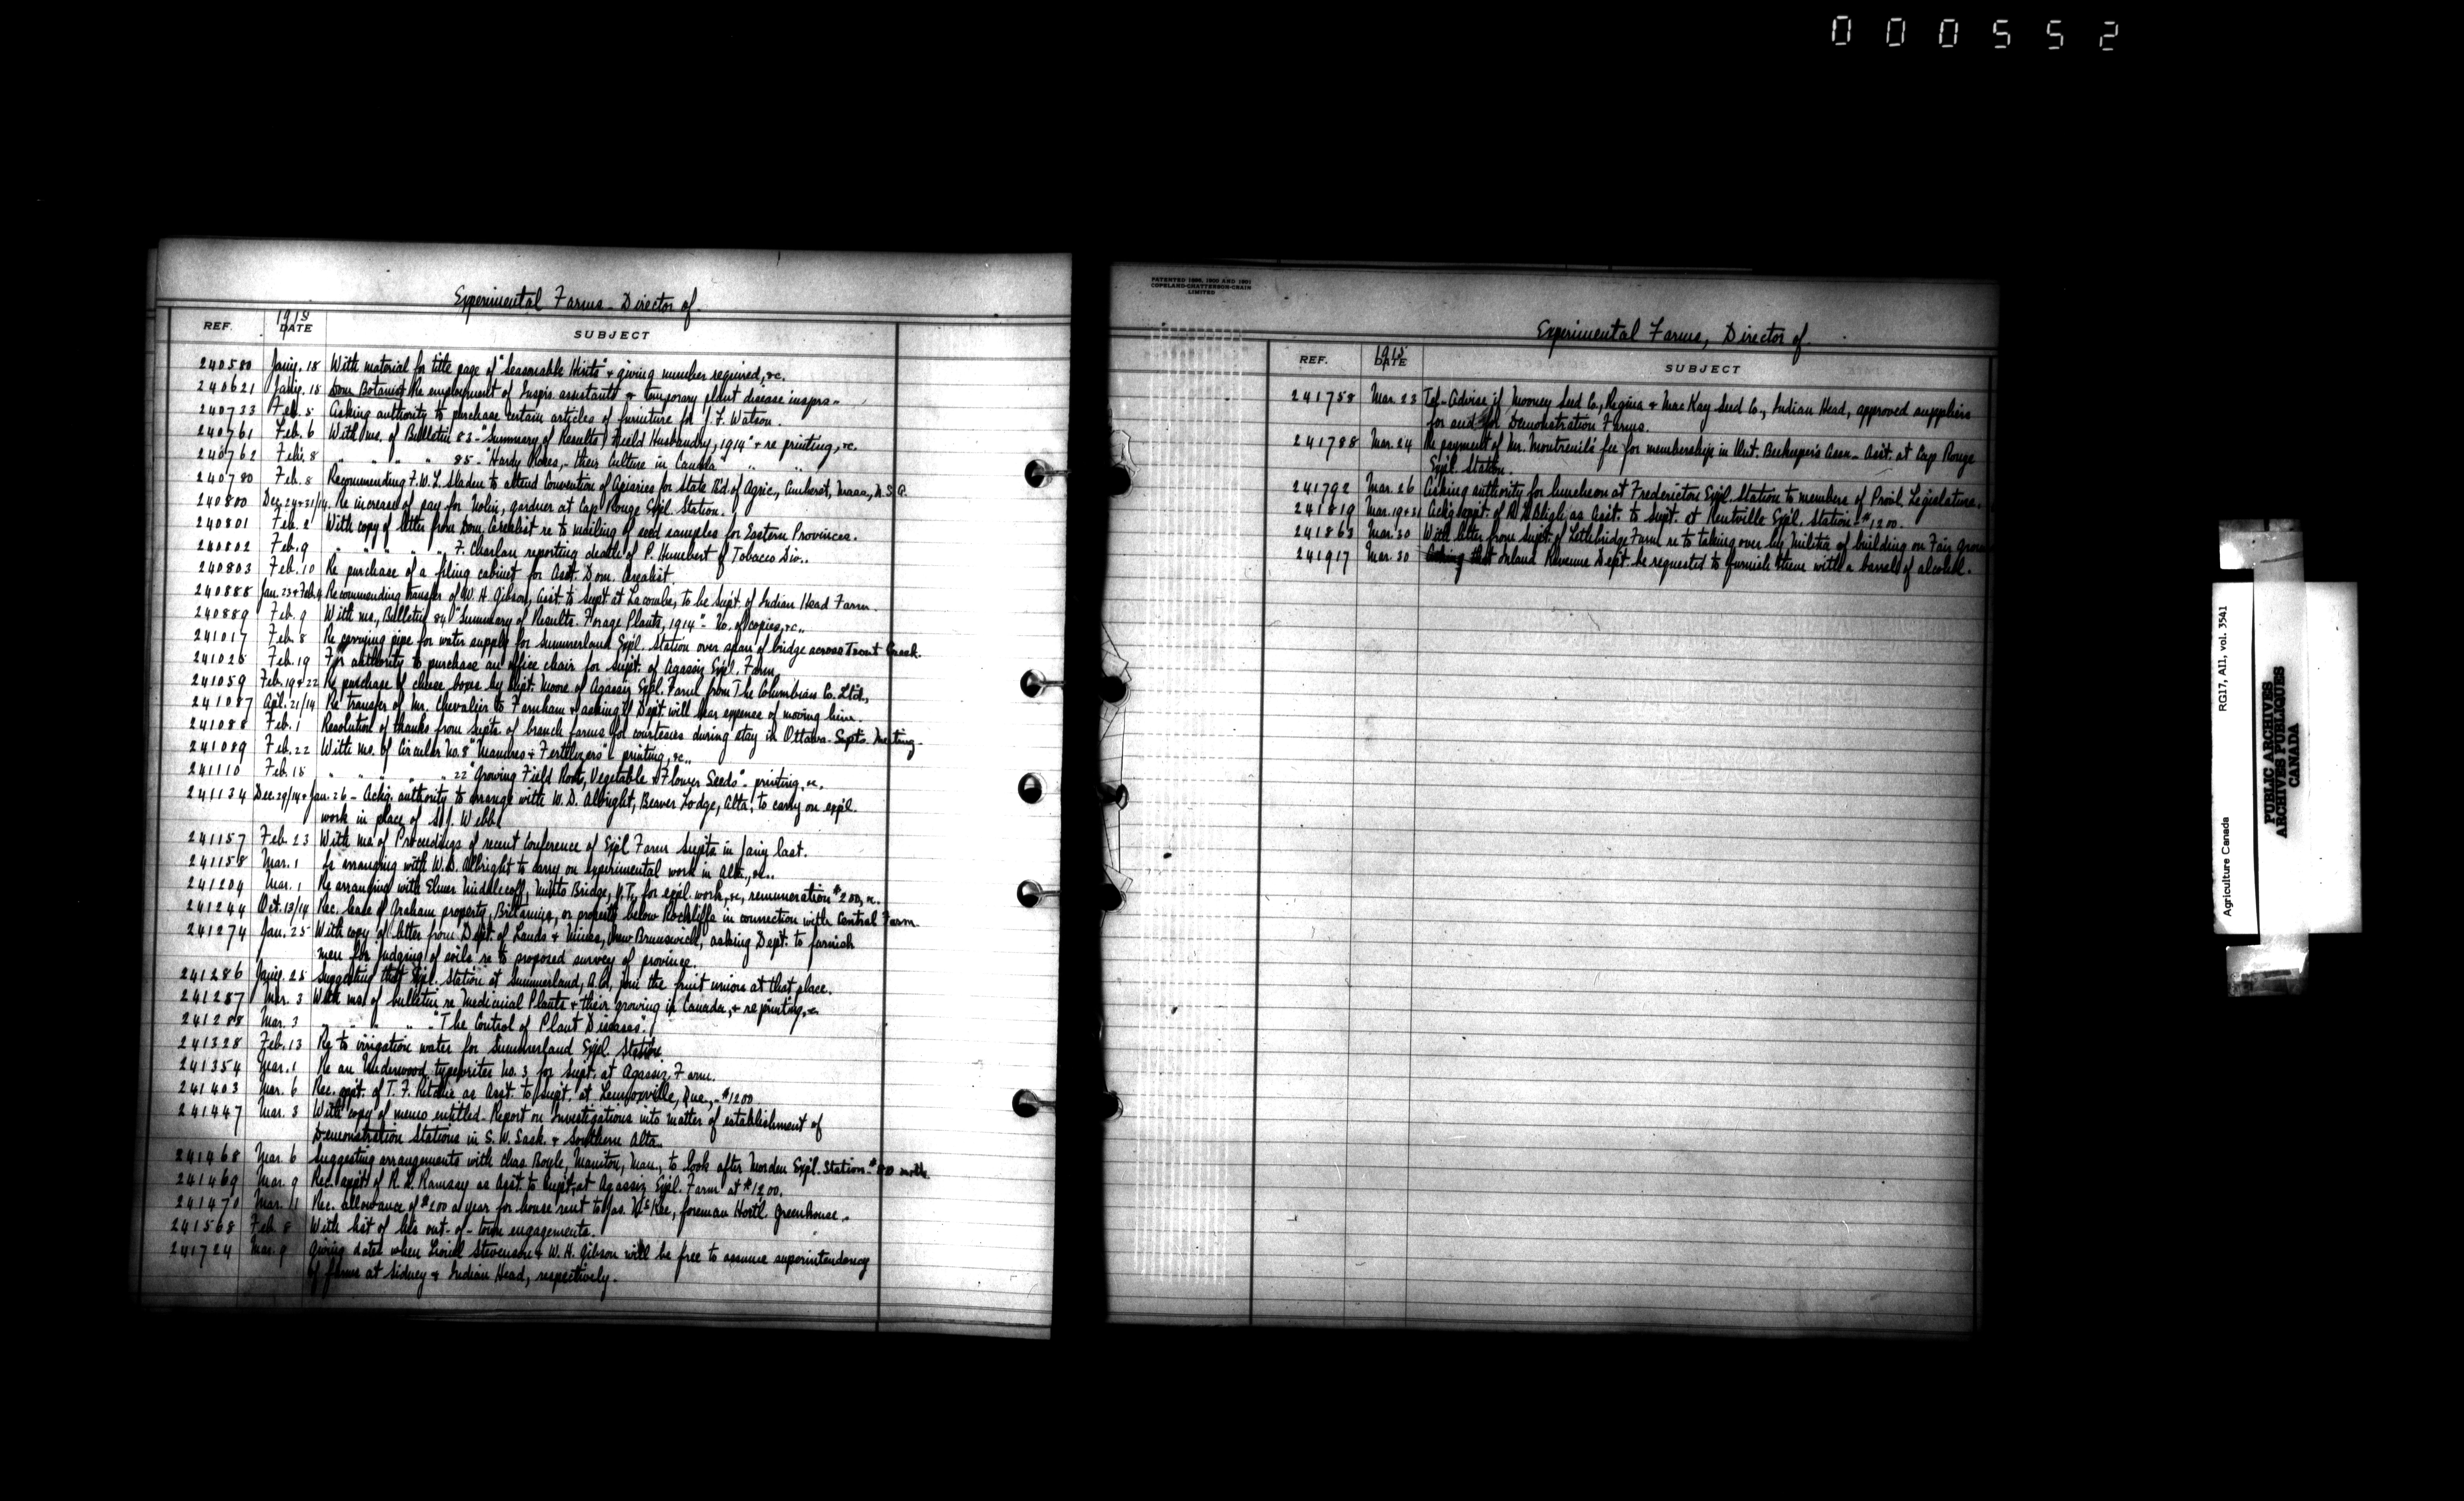 000552
Experimental Farms - Director of.
REF. 1915 DATE SUBJECT
240580 Jany. 18 With material for title page of "Seasonable Hints" & giving number required, &c.
240621 Jany. 18 Dom. Botanist Re employment of Inspn. assistants & temporary plant disease insprs.
240733 Feb. 5 Asking authority to purchase certain articles of furniture for J. F. Watson.
240761 Feb. 6 With ms. of Bulletin 83 - "Summary of Results, Field Husbandry, 1914" & re printing, &c.
240762 Feb. 8 " " " " 85 - "Hardy Roses, - their Culture in Canada" " "
240780 Feb. 8 Recommending F. W. L. Sladen to attend Convention of Apiaries for State Bd. of Agric., Amherst, Mass., U.S.A.
240800 Dec. 24 & 31/14 Re increase of pay for Nolin, gardner at Cap Rouge Expl. Station.
240801 Feb. 2 With copy of letter from Dom. Cerealist re to mailing of seed samples for Eastern Provinces.
240802 Feb. 9 " " " " F. Charlan reporting death of P. Humbert of Tobacco Div..
240803 Feb. 10 Re purchase of a filing cabinet for Asst. Dom. Cerealist.
240888 Jan. 23 & Feb. 4 Recommending transfer of W. H. Gibson, Asst. to Supt. at Lacombe, to be Supt. of Indian Head Farm.
240889 Feb. 9 With ms., Bulletin 84 "Summary of Results. Forage Plants, 1914" - No. of copies, &c.,
241017 Feb. 8 Re carrying pipe for water supply for Summerland Expl. Station over span of bridge across Trout Creek.
241025 Feb. 19 For authority to purchase an office chair for Supt. of Agassiz Expl. Farm.
241059 Feb. 19 & 22 Re purchase of cheese boxes by Supt. Moore of Agassiz Expl. Farm from The Columbian Co. Ltd.,
241087 Apl. 21/14 Re transfer of Mr. Chevalier to Farnham & asking if Dept. will bear expense of moving him.
241088 Feb. 1 Resolution of thanks from Supts. of branch farms for courtesies during stay in Ottawa - Supts. Meeting.
241089 Feb. 22 With ms. of Circular No. 8 "Manures & Fertilizers" printing, &c..
241110 Feb. 15 " " " " 22 "Growing Field Root, Vegetable & Flower Seeds" - printing, &c.
241134 Dec. 29/14 & Jan. 26 - Ackg. authority to arrange with W. D. Albright, Beaver Lodge, Alta., to carry on expl.
work in place of S. J. Webb.
241157 Feb. 23 With ms. of Proceedings of recent Conference of Expl. Farm Supts. in Jany last.
241158 Mar. 1 Re arranging with W. D. Albright to carry on experimental work in Alta., &c..
241204 Mar. 1 Re arranging with Elmer Bridge, Y.T., for expl. work, &c, remuneration $200, &c.
241244 Oct. 13/14 Rec. lease of Graham property, Britannia, or property below Rockliffe in connection with Central Farm.
241274 Jan. 25 With copy of letter from Dept. of Lands & Mines, New Brunswick, asking Dept. to furnish
men for judging of soils re to proposed survey of province.
241286 Jany. 25 Suggesting that Expl. Station at Summerland, B.C., join the fruit union at that place.
241287 Mar. 3 With ms. of bulletin re Medicinal Plants & their growing in Canada, & re printing, &c.
241288 Mar. 3 " " " " "The Control of Plant Diseases".
241328 Feb. 13 Re to irrigation water for Summerland Expl. Station
241354 Mar. 1 Re an Underwood typewriter No. 3 for Supt. at Agassiz Farm.
241403 Mar. 6 Rec. appt. of T. F. Ritchie as Asst. to Supt. at Lennoxville, Que., - $1200
241447 Mar. 3 With copy of memo entitled - Report on Investigations into matter of establishment of
Demonstration Stations in S. W. Sask. & Southern Alta.
241468 Mar. 6 Suggesting arrangements with Chas. Boyle, Manitou, Man., to look after Morden Expl. Station - $80 mth.
241469 Mar. 9 Rec. appt. of R. L. Ramsay as Asst. to Supt. at Agassiz Expl. Farm at $1200.
241470 Mar. 11 Rec. allowance of $200 a year for house rent to Jas. McKee, foreman Hortl. Greenhouse.
241568 Feb. 8 With list of his out-of-town engagements.
241724 Mar. 9 Giving dates when Lionel Stevenson & W. H. Gibson will be free to assume superintendency
of farms at Sidney & Indian Head, respectively.
PATENTED 1896, 1900 AND 1901
COPELAND-CHATTERSON-CRAIN
LIMITED
Experimental Farms, Director of.
REF. 1915 DATE SUBJECT
241758 Mar. 23 Tel - Advise if Mooney Seed Co., Regina & MacKay Seed Co., Indian Head, approved suppliers
for Demonstration Farms.
241788 Mar. 24 Re payment of Mr. Montreuil's fee for membership in Ont. Beekeeper's Assn. - Asst. at Cap Rouge
Expl. Station.
241792 Mar. 26 Asking authority for luncheon at Fredericton Expl. Station to members of Provl. Legislature.
241819 Mar. 19 & 31 Ackg. appt. of R. D. L. Bligh as Asst. to Supt. at Kentville Expl. Station - $1200.
241863 Mar. 30 With letter from Supt. of Lethbridge Farm re to taking over by Militia of building on Fair
241917 Mar. 30 Asking that Inland Revenue Dept. be requested to furnish them with a barrel of alcohol.
Agriculture Canada RG17, A11, vol. 3541
PUBLIC ARCHIVES
ARCHIVES PUBLIQUES
CANADA